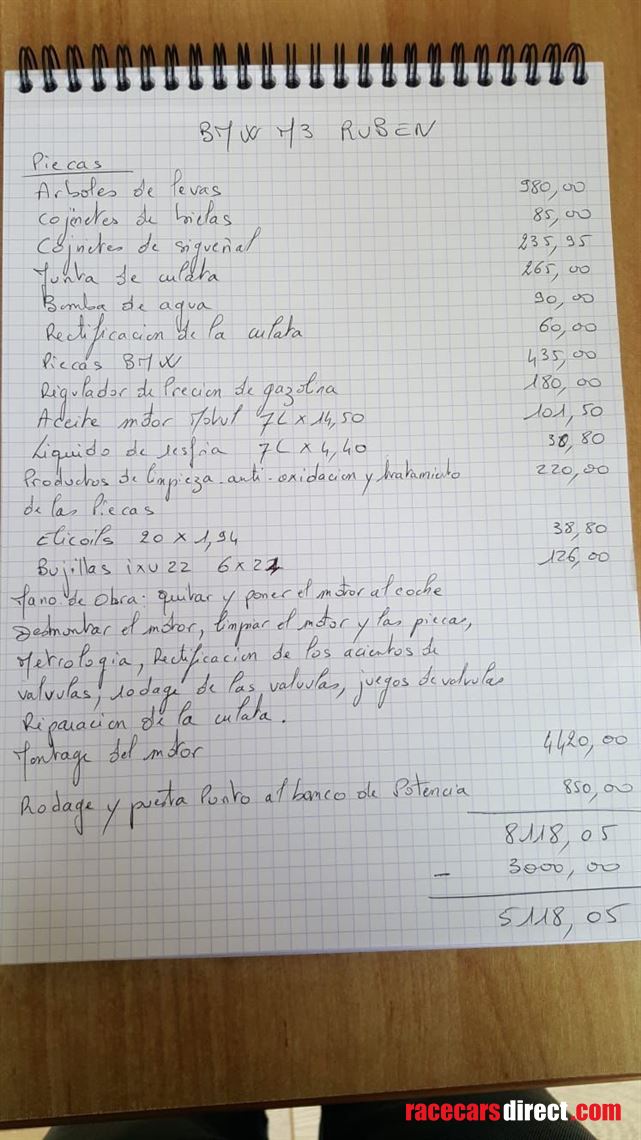 BMW M3 RUBEN
Piecas
Arboles de levas 980,00
Cojinetes de bielas 85,00
Cojnetes de sigueñal 235,95
Junta de culata 265,00
Bomba de agua 90,00
Rectificacion de la culata 60,00
Piecas BMW 435,00
Rigulador de Precion de gazolna 180,00
Aceite motor Motul 7L x 14,50 101,50
Liquido de resfria 7L x 4,40 30,80
Productos de limpieza-anti-oxidacion y tratamiento 220,00
de las Piecas
Elicoils 20 x 1,94 38,80
Bujillas ixu 22 6 x 21 126,00
Mano de Obra: quitar y poner el motor al coche
Desmontar el motor, limpiar el motor y las piecas,
Metrologia, Rectificacion de los acientos de
valvulas, rodage de las valvulas, juegos de valvulas
Riparacion de la culata.
Montrage del motor 4420,00
Rodage y puesta Punto al banco de Potencia 850,00
8118,05
- 3000,00
5118,05
racecarsdirect.com